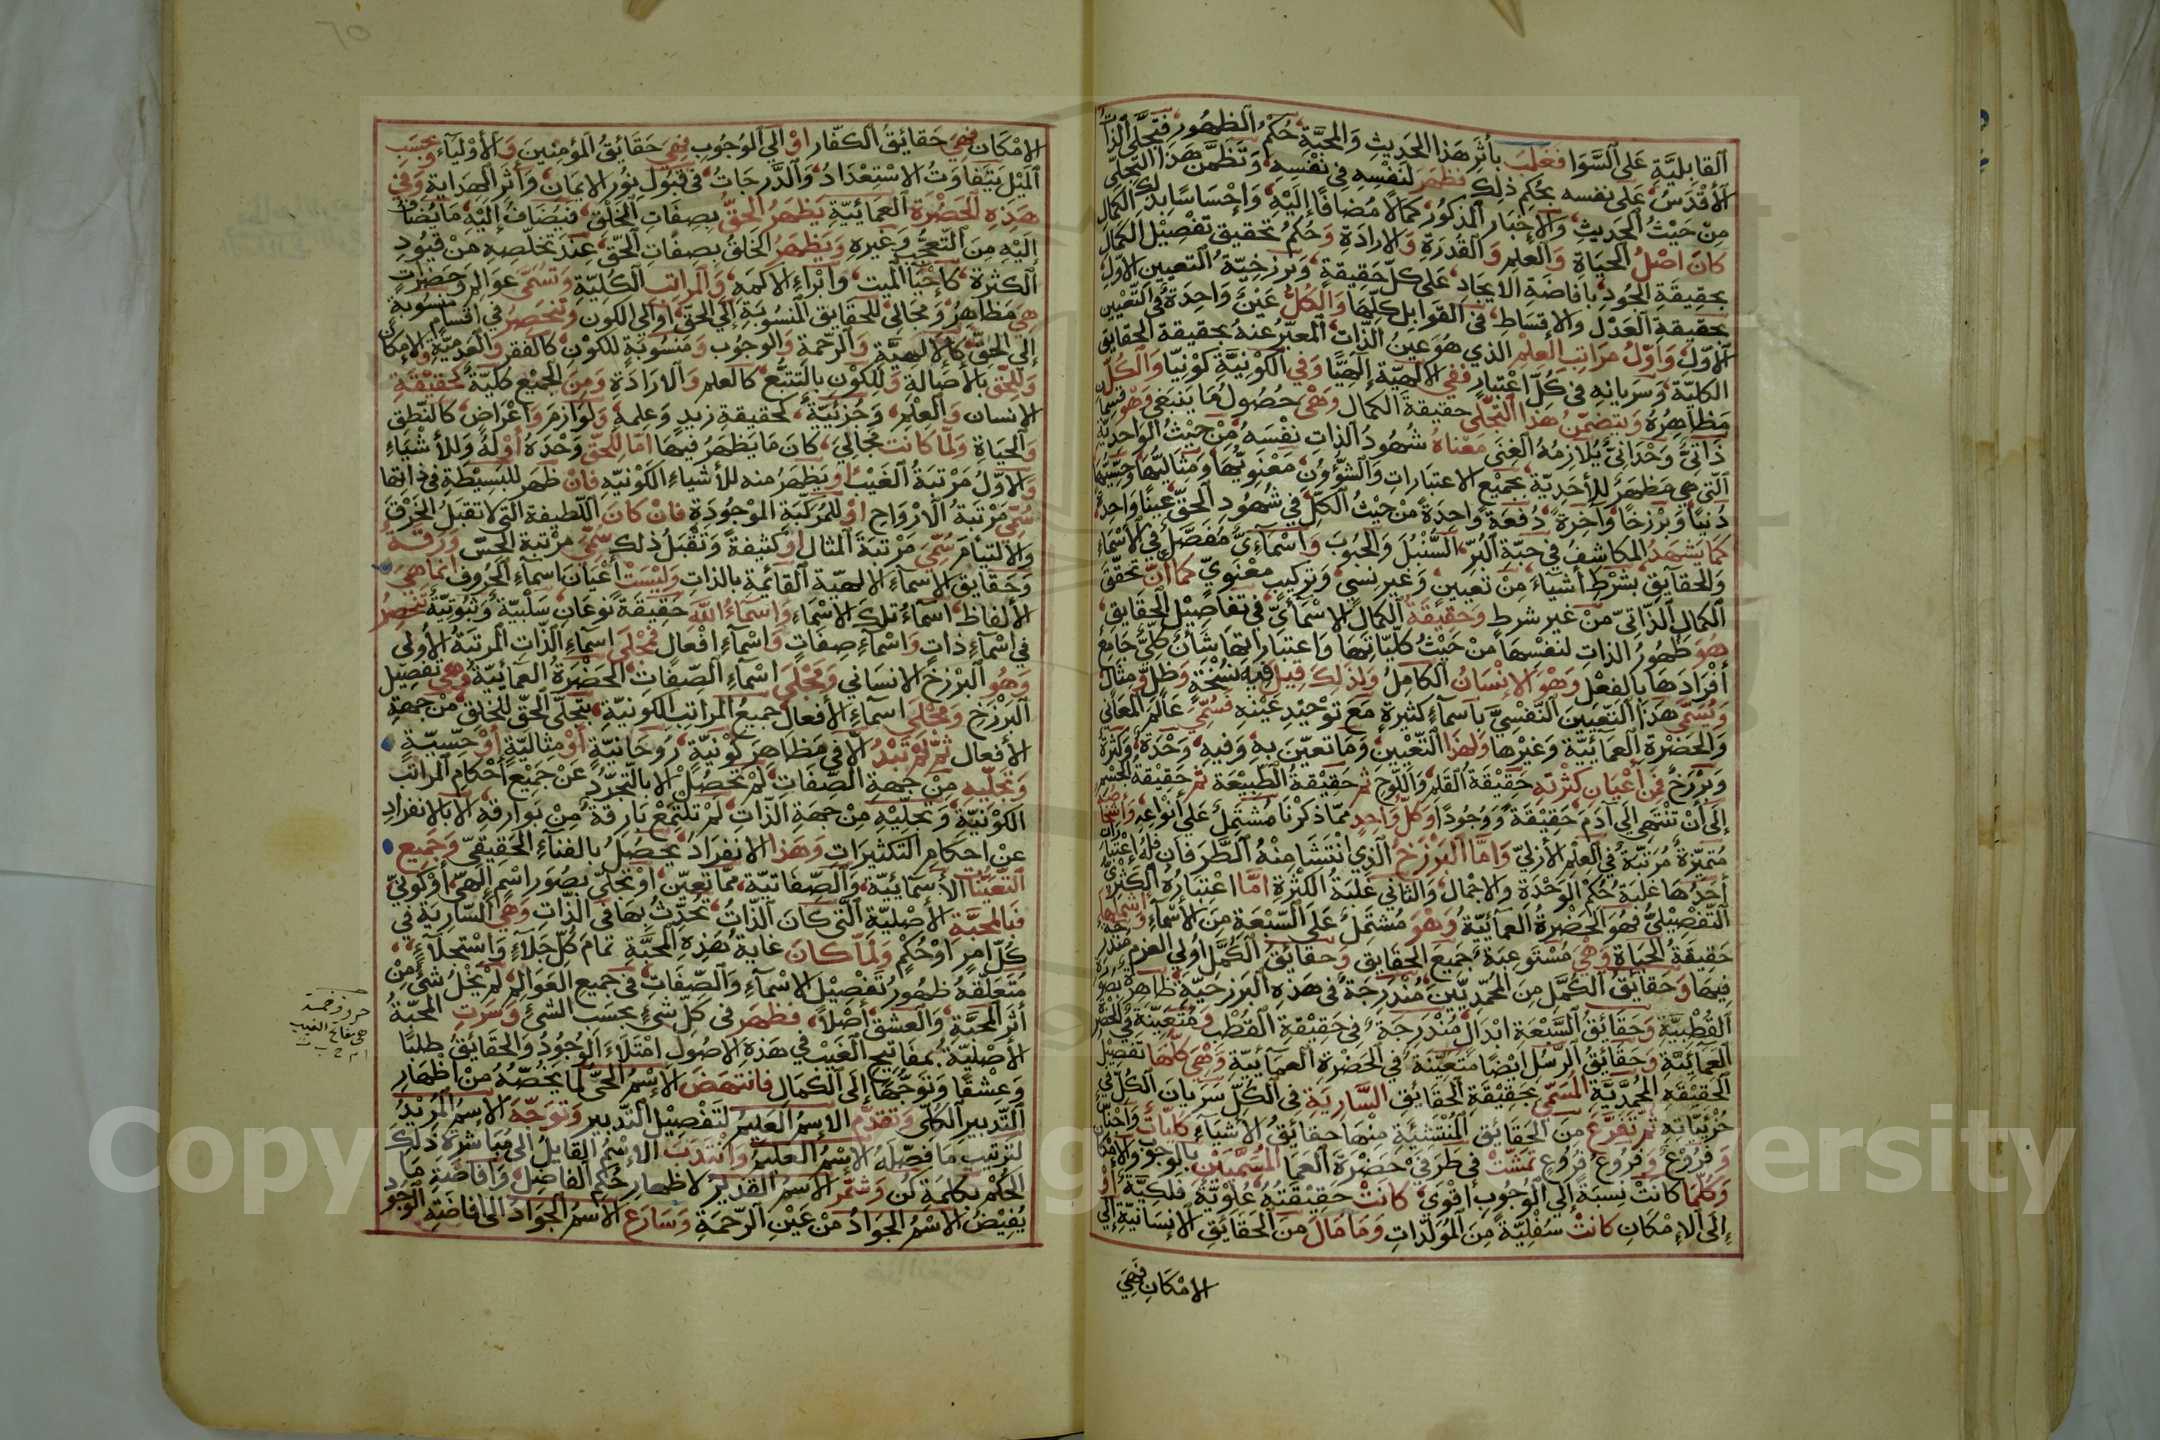 القابلية على السوا فغلب بأثر هذا الحديث والمحبة حكم الظهور فتجلى الذات
الأقدس على نفسه بحكم ذلك فظهر لنفسه في نفسه وتظمن هذا التجلي
من حيث الحديث والإخبار المذكور كمالا مضافا إليه وإحساسا بذلك الكمال
كان اصل الحياة والعلم والقدرة والارادة وحكم تحقيق تفصيل الكمال
بحقيقة الجود بافاضة الايجاد على كل حقيقة وبرزخية التعيين الاول
بحقيقة العدل والاقساط في القوابل كلها والكل عين واحدة في التعيين
الاول واول مراتب العلم الذي هو عين الذات المعبر عنه بحقيقة الحقايق
الكلية وسريانه في كل اعتبار ففي الالهية إلهيا وفي الكونية كونيا والكل
مظاهره ويتضمن هذا التجلي حقيقة الكمال وهي حصول ما ينبغي وهو قسمان
ذاتي وحداني يلازمه الغنى معناه شهود الذات نفسه من حيث الواحدية
التي هي مظهر للأحدية بجميع الاعتبارات والشؤون معنويها ومثاليها وحسيها
دنيا وبرزخا وآخرة دفعة واحدة من حيث الكل في شهود الحق عينا واحدة
كما يشهد المكاشف في حبة البر السنبل والحبوب واسمآءي مفصل في الأسماء
والحقايق بشرط أشياء من تعيين وغير نسبي وتركيب معنوي كما أن تحقق
الكمال الذاتي من غير شرط وحقيقة الكمال الاسمآءي في تفاصيل الحقايق
هو ظهور الذات لنفسها من حيث كلياتها واعتباراتها شأن كلي جامع
أفرادها بالفعل وهو الإنسان الكامل ولذلك قيل فيه نسخة وظل ومثال
ويسمى هذا التعيين النفسي بأسمآء كثيرة مع توحيد عينه فسمي عالم المعاني
والحضرة العمائية وغيرها ولهذا التعيين وما تعين به وفيه وحدة وكثرة
وبرزخ فمن أعيان كثرته حقيقة القلم واللوح ثم حقيقة الطبيعة ثم حقيقة الجسم
إلى أن تنتهي إلى آدم حقيقة ووجودا وكل واحد مما ذكرنا مشتمل على أنواعه وأشخاصه
متميزة مرتبة في العلم الأزلي واما البرزخ الذي انتشا منه الطرفان فله إعتباران
أحدها غلبة حكم الوحدة والاجمال والثاني غلبة الكثرة اما اعتباره الكثري
التفصيلي فهو الحضرة العمائية وهو مشتمل على السبعة من الأسمآء وأشملها
حقيقة الحياة وهي مستوعبة جميع الحقايق وحقائق الكمل اولي العزم مندرجة
فيها وحقائق الكمل من المحمديين مندرجة في هذه البرزخية ظاهرة بصورة
القطبية وحقائق السبعة ابدال مندرجة في حقيقة القطب ومتعينة في الحضرة
العمائية وحقائق الرسل ايضا متعينة في الحضرة العمائية وهي كلها تفصيل
الحقيقة المحمدية المسمى بحقيقة الحقايق السارية في الكل سريان الكل في
جزئياته ثم تفرع من الحقايق المنتشئية منها حقائق الاشياء كليات وأجناس
وفروع وفروع فروع تمشت في طرفي حضرة العما المسميين بالوجوب والامكان
وكلما كانت نسبة إلى الوجوب أقوى كانت حقيقته علوية فلكية أو
إلى الإمكان كانت سفلية من المولدات وما مال من الحقايق الإنسانية إلى
الامكان فهي
الامكان فهي حقائق الكفار او الى الوجوب فهي حقائق المؤمنين والأولياء وبحسب
الميل يتفاوت الاستعداد والدرجات في قبول نور الايمان وأثر الهداية وفي
هذه الحضرة العمائية يظهر الحق بصفات الخلق فيضاف إليه ما يضاف
إليه من التعجب وغيره ويظهر الخلق بصفات الحق عند تخلصه من قيود
الكثرة كإحيآ الميت وابراء الاكمه والمراتب الكلية وتسمى عوالم وحضرات
هي مظاهر ومجالي للحقايق المنسوبة إلى الحق او الى الكون وتنحصر في اقسام منسوبة
إلى الحق كالالهية والرحمة والوجوب ومنسوبة للكون كالفقر والعدمية والإمكان
وللحق بالأصالة وللكون بالتتبع كالعلم والارادة ومن الجميع كلية كحقيقة
الانسان والعلم وجزئية كحقيقة زيد وعلمه ولوازم واعراض كالنطق
والحياة ولما كانت مجالي كان ما يظهر فيها اما للحق وحده أو له وللأشياء
والاول مرتبة الغيب او يظهر منه للأشياء الكونيه فان ظهر للبسيطة في ذاتها
سمي مرتبة الارواح او للمركبة الموجودة فان كان اللطيفة التي لا تقبل الخرق
والالتيام سمي مرتبة المثال او كثيفة وتقبل ذلك سمي مرتبة الحس ورقة
وحقايق الاسمآء الالهية القائمة بالذات وليست أعيان اسمآء الحروف انما هي
الألفاظ اسمآء تلك الاسمآء واسماء الله حقيقة نوعان سلبية وثبوتية تنحصر
في اسمآء ذات واسمآء صفات واسمآء افعال فمجلى اسمآء الذات المرتبة الأولى
وهو البرزخ الانساني ومجلى اسمآء الصفات الحضرة العمائية وهي تفصيل
البرزخ ومجلى اسمآء الأفعال جميع المراتب الكونية بتجلي الحق للخلق من جهة
الأفعال ثم لم تبد الا في مظاهر كونية روحانية أو مثالية أو حسية
وتجليه من جهة الصفات لم تحصل الا بالتجرد عن جميع أحكام المراتب
الكونية وتجليه من جهة الذات لم تلتمع بارقة من بوارقه الا بالانفراد
عن احكام التكثيرات وهذا الانفراد يحصل بالفنآء الحقيقي وجميع
التعينات الأسمآئية والصفاتية مما يتعين او تجلى بصور اسم إلهي أو كوني
فبالمحبة الأصلية التي كان الذات يحدث بها في الذات وهي السارية في
كل امر او حكم ولما كان غاية هذه المحبة تمام كل جلاء واستجلاء
متعلقه ظهور تفصيل الاسمآء والصفات في جميع العوالم لم يخل شئ من
أثر المحبة والعشق أصلا فظهر في كل شئ بحسب الشئ وسرت المحبة
الأصلية بمفاتيح الغيب في هذه الاصول امتلاء الوجود والحقايق طلبا
وعشقا وتوجها إلى الكمال فانتهض الإسم الحي لما يخصه من إظهار
التدبير الكلي وتقدم الإسم العليم لتفصيل التدبير وتوجه الاسم المريد
لترتيب ما فصله الإسم العليم وانتدب الإسم القايل الى مباشرة ذلك
الحكم بكلمة كن وشمر الاسم القدير لاظهار حكم الفاصل وافاضة ما
يفيض الاسم الجواد من عين الرحمة وسارع الاسم الجواد الى افاضة الوجود
حروف خمسة
هي مفاتح الغيب